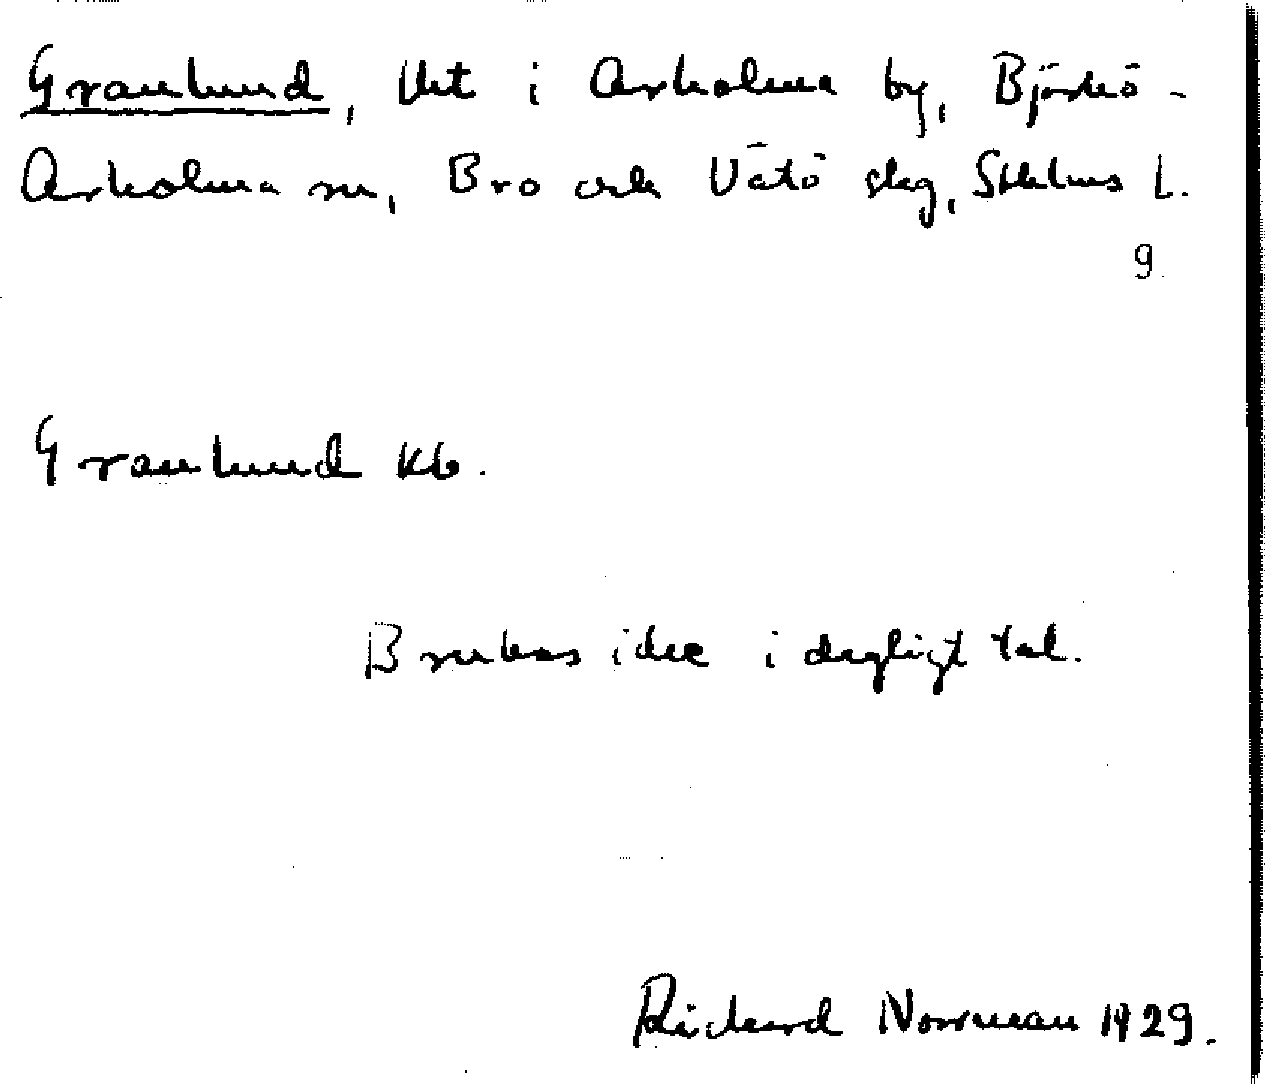 Granlund, lht i Arholma by, Björkö-
Arholma sn, Bro och Vätö slg, Sthlms L.
9
Granlund kb.
Brukas icke i dagligt tal.
Rickard Norrman 1929.